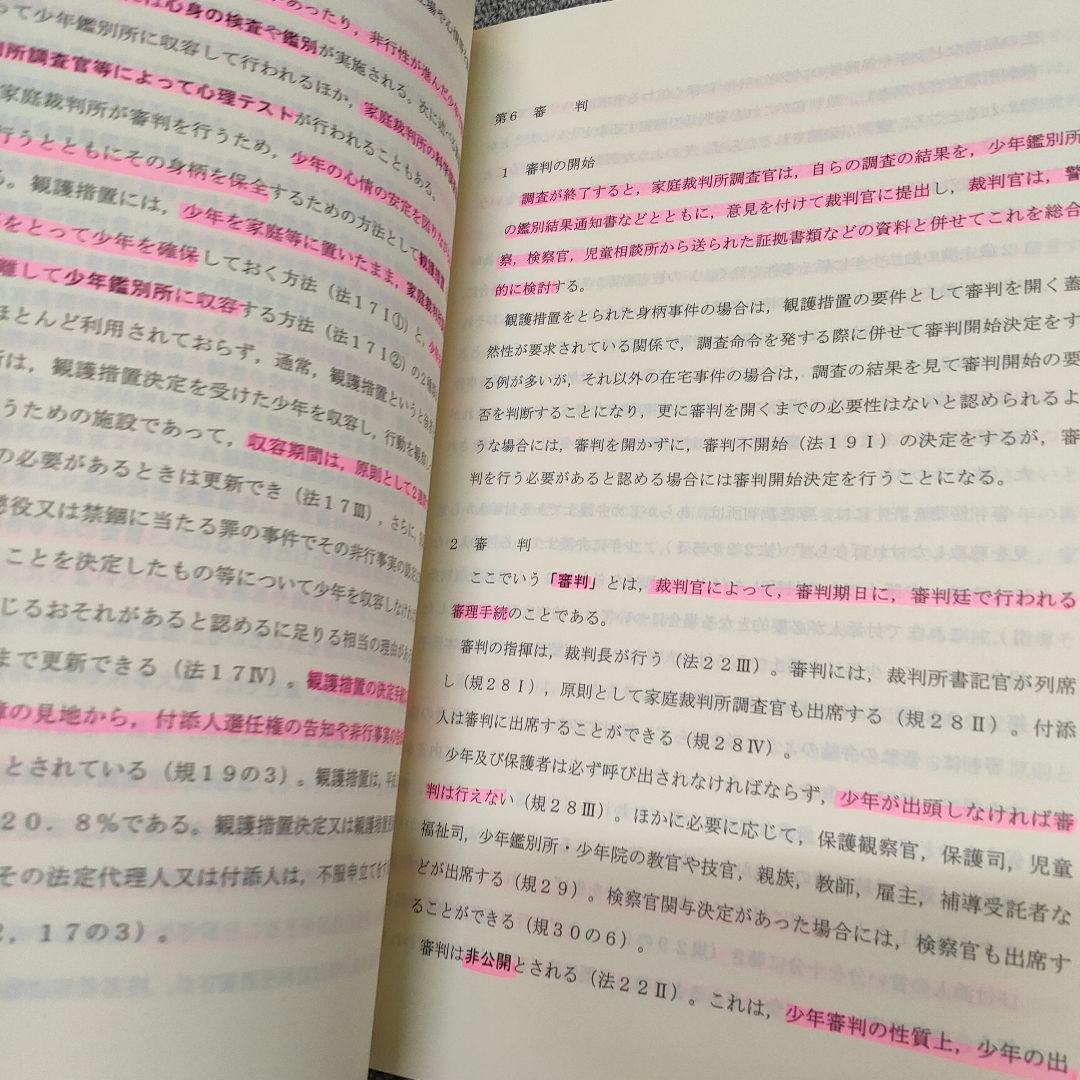 あったり，非行性が進んだ少年
は心身の検査や鑑別が実施される。次に述べ
って少年鑑別所に収容して行われるほか，家庭裁判所の科学
所調査官等によって心理テストが行われることもある。
家庭裁判所が審判を行うため，少年の心情の安定を図りな
行うとともにその身柄を保全するための方法として観護措置
る。観護措置には，少年を家庭等に置いたまま，家庭裁判所
をとって少年を確保しておく方法（法１７Ⅰ①）と，少年
離して少年鑑別所に収容する方法（法１７Ⅰ②）の２種
ほとんど利用されておらず，通常，観護措置というと
所は，観護措置決定を受けた少年を収容し，行動を観
うための施設であって，収容期間は，原則として２週
の必要があるときは更新でき（法１７Ⅲ），さらに，
懲役又は禁錮に当たる罪の事件でその非行事実の認定
ことを決定したもの等について少年を収容しなければ
じるおそれがあると認めるに足りる相当の理由があ
まで更新できる（法１７Ⅳ）。観護措置の決定手続
の見地から，付添人選任権の告知や非行事実の告
とされている（規１９の３）。観護措置は，平
２０．８％である。観護措置決定又は観護措置更
その法定代理人又は付添人は，不服申立て
２，１７の３）。
第６ 審 判
１ 審判の開始
調査が終了すると，家庭裁判所調査官は，自らの調査の結果を，少年鑑別所
の鑑別結果通知書などとともに，意見を付けて裁判官に提出し，裁判官は，警
察，検察官，児童相談所から送られた証拠書類などの資料と併せてこれを総合
的に検討する。
観護措置をとられた身柄事件の場合は，観護措置の要件として審判を開く蓋
然性が要求されている関係で，調査命令を発する際に併せて審判開始決定をす
る例が多いが，それ以外の在宅事件の場合は，調査の結果を見て審判開始の要
否を判断することになり，更に審判を開くまでの必要性はないと認められるよ
うな場合には，審判を開かずに，審判不開始（法１９Ⅰ）の決定をするが，審
判を行う必要があると認める場合には審判開始決定を行うことになる。
２ 審 判
ここでいう「審判」とは，裁判官によって，審判期日に，審判廷で行われる
審理手続のことである。
審判の指揮は，裁判長が行う（法２２Ⅲ）。審判には，裁判所書記官が列席
し（規２８Ⅰ），原則として家庭裁判所調査官も出席する（規２８Ⅱ）。付添
人は審判に出席することができる（規２８Ⅳ）。
少年及び保護者は必ず呼び出されなければならず，少年が出頭しなければ審
判は行えない（規２８Ⅲ）。ほかに必要に応じて，保護観察官，保護司，児童
福祉司，少年鑑別所・少年院の教官や技官，親族，教師，雇主，補導受託者な
どが出席する（規２９）。検察官関与決定があった場合には，検察官も出席す
ることができる（規３０の６）。
審判は非公開とされる（法２２Ⅱ）。これは，少年審判の性質上，少年の出